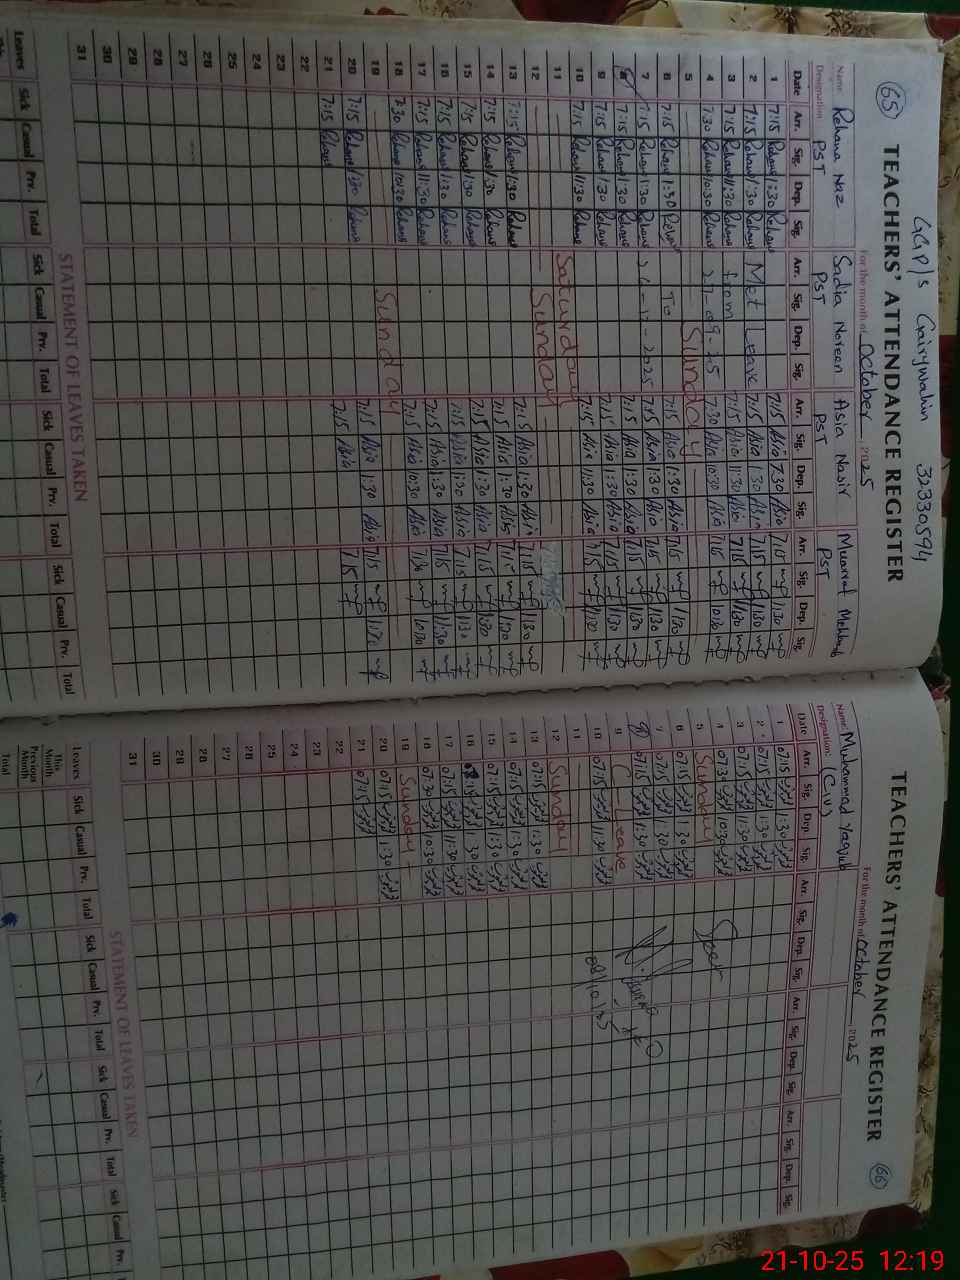 65
GGP/s Gairywahin 32330594
TEACHERS' ATTENDANCE REGISTER
For the month of October 2025
Name Rehana Naz Sadia Noreen Asia Nasir Musarrat Mehboob
Designation PST PST PST PST
Date Arr. Sig. Dep. Sig. Arr. Sig. Dep. Sig. Arr. Sig. Dep. Sig. Arr. Sig. Dep. Sig.
1 7:15 Rehana 1:30 Rehana 7:15 Asia 7:30 Asia 7:15 1:30
2 7:15 Rehana 1:30 Rehana Met Leave 7:15 Asia 1:30 Asia 7:15 1:30
3 7:15 Rehana 11:30 Rehana from 7:15 Asia 11:30 Asia 7:15 11:30
4 7:30 Rehana 10:30 Rehana 27-09-25 7:30 Asia 10:30 Asia 7:15 10:30
5 Sunday
6 7:15 Rehana 1:30 Rehana To 7:15 Asia 1:30 Asia 7:15 1:30
7 7:15 Rehana 1:30 Rehana 24-12-2025 7:15 Asia 1:30 Asia 7:15 1:30
8 7:15 Rehana 1:30 Rehana 7:15 Asia 1:30 Asia 7:15 1:30
9 7:15 Rehana 1:30 Rehana 7:15 Asia 1:30 Asia 7:15 1:30
10 7:15 Rehana 11:30 Rehana 7:15 Asia 11:30 Asia 7:15 11:30
11 Saturday
12 Sunday
13 7:15 Rehana 1:30 Rehana 7:15 Asia 1:30 Asia 7:15 1:30
14 7:15 Rehana 1:30 Rehana 7:15 Asia 1:30 Asia 7:15 1:30
15 7:15 Rehana 1:30 Rehana 7:15 Asia 1:30 Asia 7:15 1:30
16 7:15 Rehana 1:30 Rehana 7:15 Asia 1:30 Asia 7:15 1:30
17 7:15 Rehana 11:30 Rehana 7:15 Asia 1:30 Asia 7:15 11:30
18 7:30 Rehana 10:30 Rehana 7:15 Asia 10:30 Asia 7:30 10:30
19 Sunday
20 7:15 Rehana 1:30 Rehana 7:15 Asia 1:30 Asia 7:15 1:30
21 7:15 Rehana 7:15 Asia 7:15
22
23
24
25
26
27
28
29
30
31
STATEMENT OF LEAVES TAKEN
Leaves Sick Casual Prv. Total Sick Casual Prv. Total Sick Casual Prv. Total Sick Casual Prv. Total
66
TEACHERS' ATTENDANCE REGISTER
For the month of October 2025
Name: Muhammad Yaqub
Designation: (C.IV)
Date Arr. Sig. Dep. Sig. Arr. Sig. Dep. Sig. Arr. Sig. Dep. Sig. Arr. Sig. Dep. Sig.
1 07:15 1:30
2 07:15 1:30
3 07:15 11:30
4 07:30 10:30
5 Sunday
6 07:15 1:30
7 07:15 1:30
8 07:15 1:30
9 C-Leave
10 07:15 11:30
08/10/25
11
12 Sunday
13 07:15 1:30
14 07:15 1:30
15 07:15 1:30
16 07:15 1:30
17 07:15 11:30
18 07:30 10:30
19 Sunday
20 07:15 1:30
21 07:15
22
23
24
25
26
27
28
29
30
31
STATEMENT OF LEAVES TAKEN
Leaves Sick Casual Prv. Total Sick Casual Prv. Total Sick Casual Prv. Total Sick Casual Prv.
This Month
Previous Month
Total
21-10-25 12:19